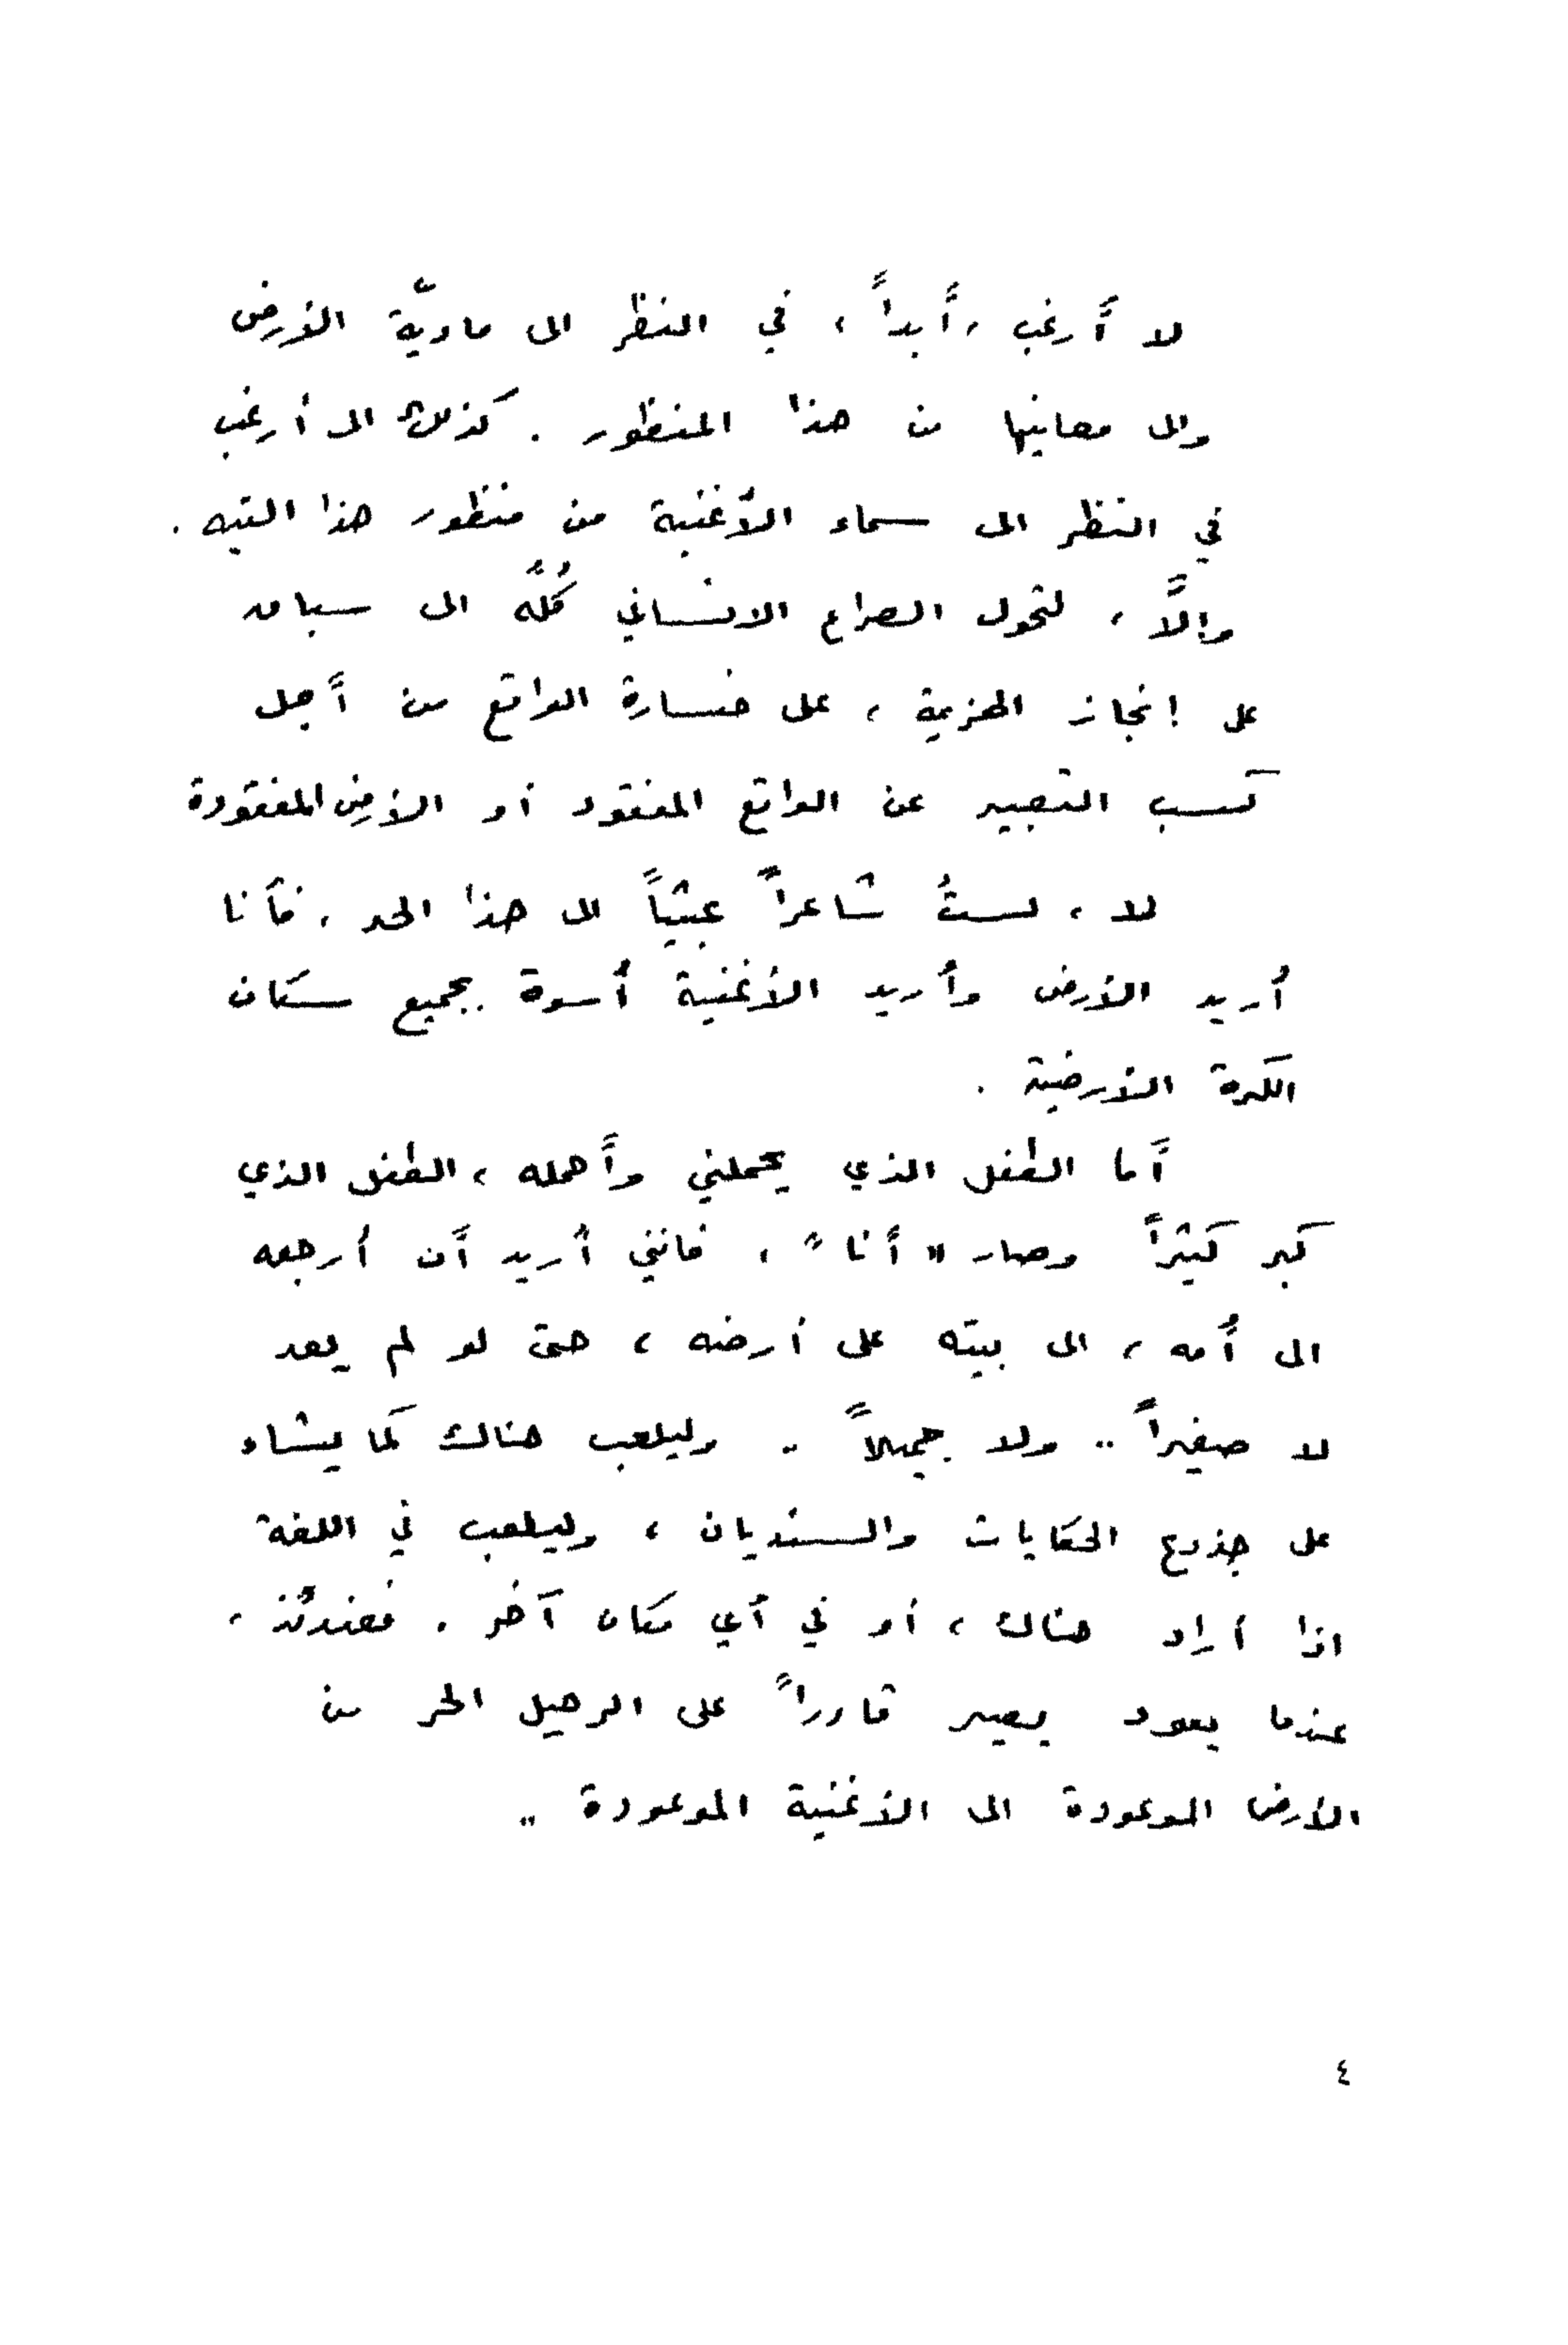 لا أرغب ، أبداً ، في النظر الى ماديّة الأرض
والى معانيها من هذا المنظور . كذلك لا أرغب
في النظر الى سماء الأغنية من منظور هذا التيه .
وإلاَّ ، لتحول الصراع الانساني كُلُّه الى سباق
على إنجاز الهزيمة ، على خسارة الواقع من أجل
كسب التعبير عن الواقع المفقود أو الأرض المفقودة
لا ، لستُ شاعراً عبثياً الى هذا الحد . فأنا
أُريد الأرض وأُريد الأغنية أُسوة بجميع سكان
الكرة الأرضية .
أَما الطفل الذي يحملني وأَحمله ، الطفل الذي
كبر كثيراً وصار " أَنا " ، فانني أُريد أَن أُرجعه
الى أُمه ، الى بيته على أرضه ، حتى لو لم يعد
لا صغيراً .. ولا جميلاً .. وليلعب هناك كما يشاء
على جذوع الحكايات والسنديان ، وليلعب في اللغة
اذا أراد هناك ، أو في أَي مكان آخر . فعندئذ ،
عندما يعود يصير قادراً على الرحيل الحر من
الأرض الموعودة الى الأغنية الموعودة ..
٤